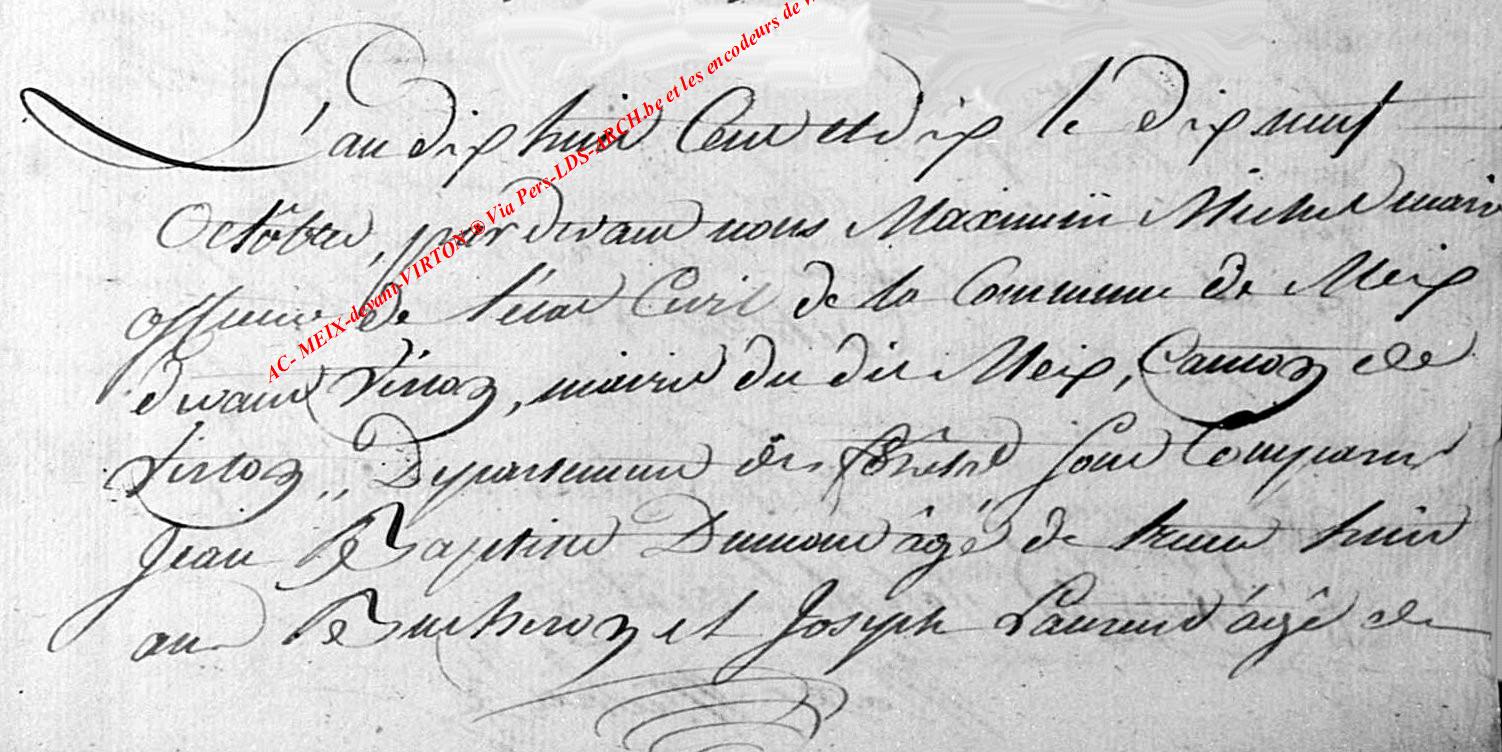 L'an dix huit Cent et dix le dix neuf
Octobre, par devant nous Maximin Michel maire
officier de l'état Civil de la Commune de Meix
devant Virton, mairie du dit Meix, Canton de
Virton, Département des forêts sont Comparus
Jean Baptiste Dumont âgé de trente huit
ans Bucheron et Joseph Laurent âgé de
AC- MEIX-devant-VIRTON ® Via Pers-LDS-ARCH.be et les encodeurs de